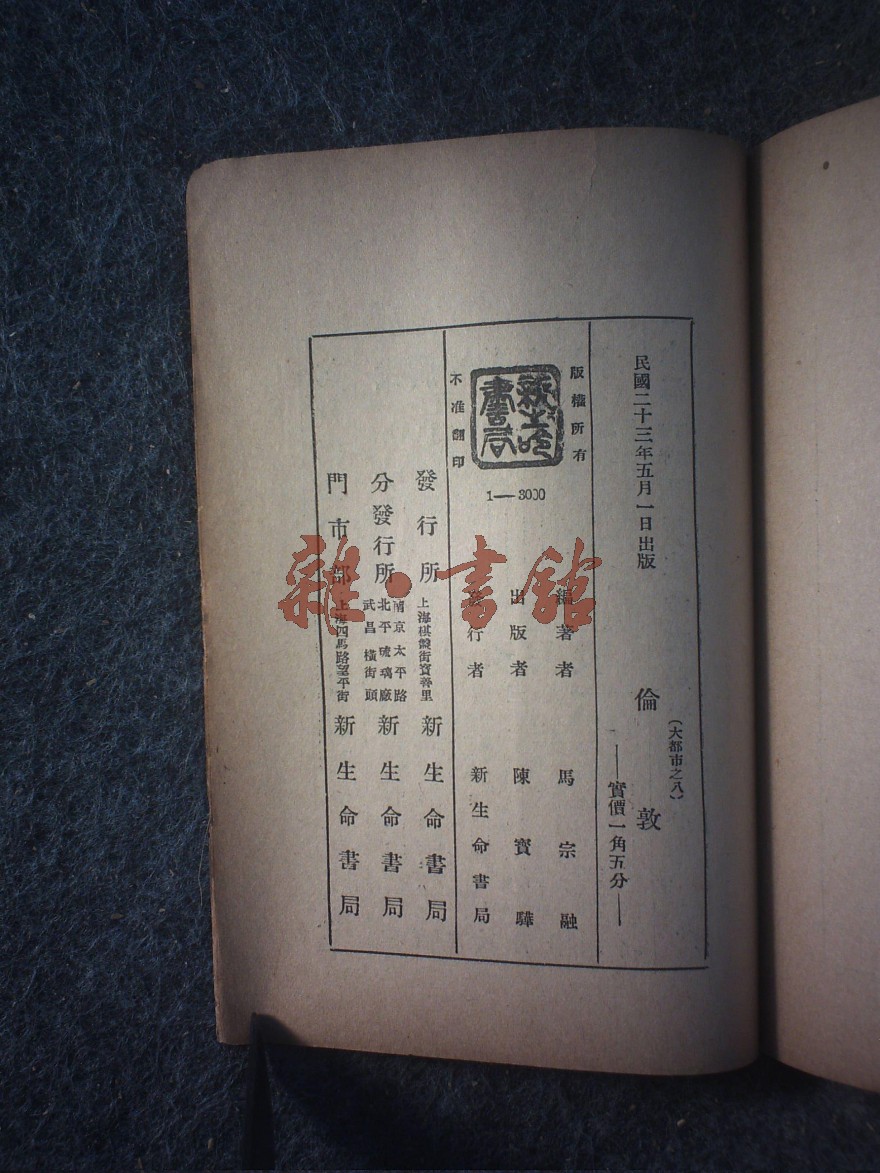 民國二十三年五月一日出版
倫敦
（大都市之八）
——實價一角五分——
版權所有
新生命書局
不准翻印
1—3000
編著者 馬宗融
出版者 陳寶驊
發行者 新生命書局
發行所 上海棋盤街寶善里 新生命書局
分發行所 南京太平路 北平琉璃廠 武昌橫街頭 新生命書局
門市部 上海四馬路望平街 新生命書局
雜·書館